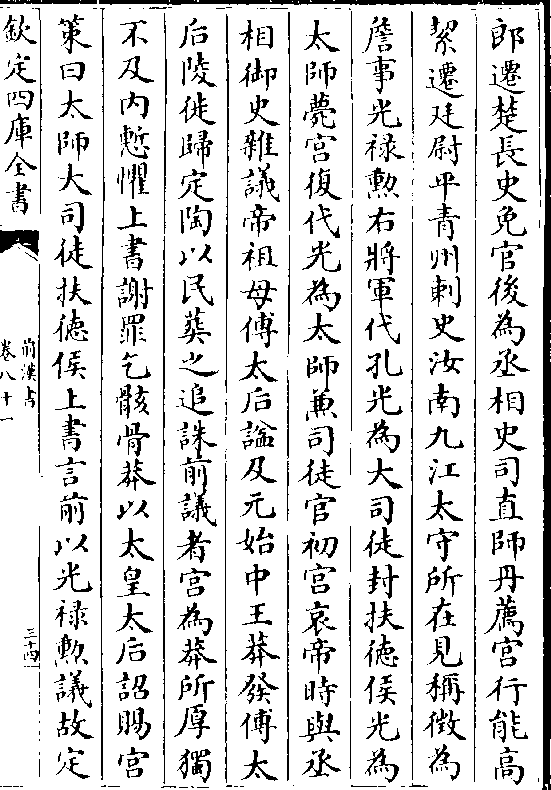 郎遷楚長史免官後為丞相史司直師丹薦宫行能高
絜遷廷尉平青州刺史汝南九江太守所在見稱徵為
詹事光禄勲右將軍代孔光為大司徒封扶徳侯光為
太師薨宫復代光為太師兼司徒官初宫哀帝時與丞
相御史雜議帝祖母傅太后諡及元始中王莽發傅太
后陵徙歸定陶以民葬之追誅前議者宫為莽所厚獨
不及内慙懼上書謝罪乞骸骨莽以太皇太后詔賜宫
策曰太師大司徒扶徳侯上書言前以光禄勲議故定
欽定四庫全書
前漢書
卷八十一
三十四